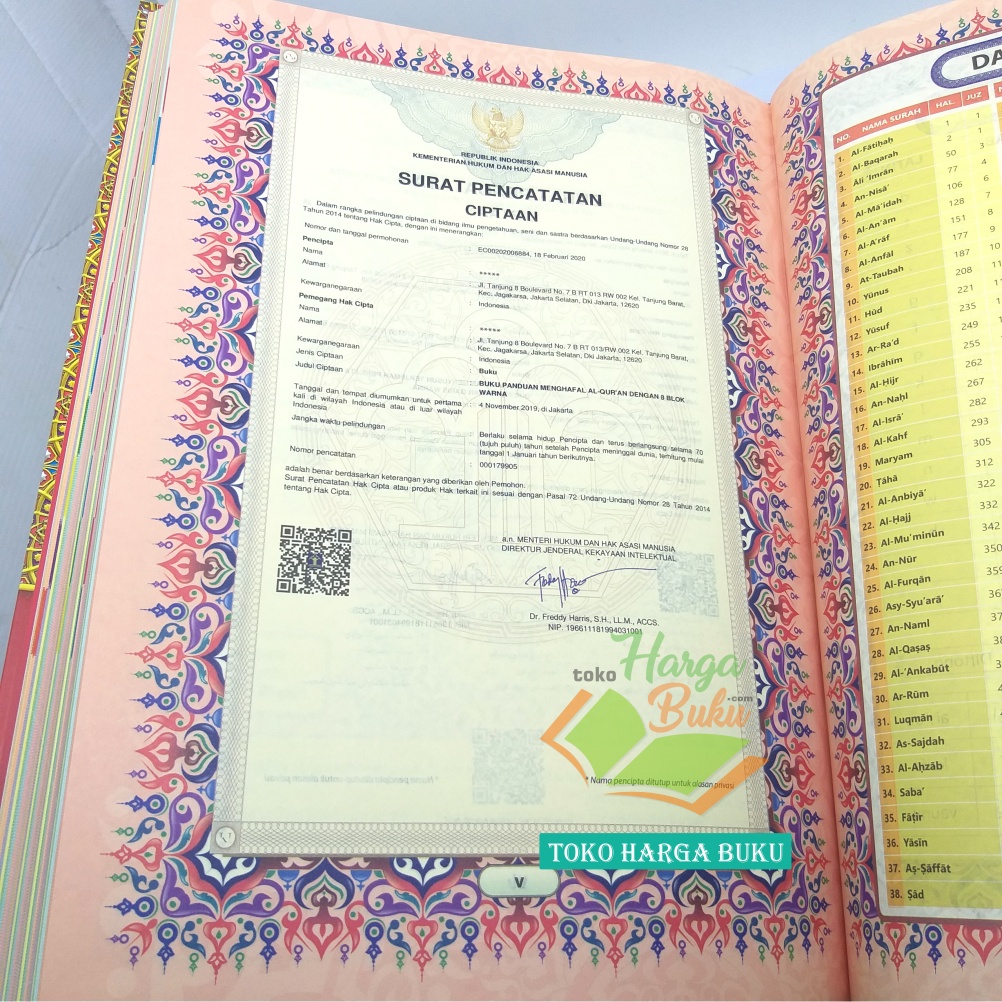 REPUBLIK INDONESIA
KEMENTERIAN HUKUM DAN HAK ASASI MANUSIA
SURAT PENCATATAN
CIPTAAN
Dalam rangka pelindungan ciptaan di bidang ilmu pengetahuan, seni dan sastra berdasarkan Undang-Undang Nomor 28
Tahun 2014 tentang Hak Cipta, dengan ini menerangkan:
Nomor dan tanggal permohonan : EC00202006884, 18 Februari 2020
Pencipta
Nama : *****
Alamat : Jl. Tanjung 8 Boulevard No. 7 B RT 013 RW 002 Kel. Tanjung Barat,
Kec. Jagakarsa, Jakarta Selatan, Dki Jakarta, 12620
Kewarganegaraan : Indonesia
Pemegang Hak Cipta
Nama : *****
Alamat : Jl. Tanjung 8 Boulevard No. 7 B RT 013/RW 002 Kel. Tanjung Barat,
Kec. Jagakarsa, Jakarta Selatan, Dki Jakarta, 12620
Kewarganegaraan : Indonesia
Jenis Ciptaan : Buku
Judul Ciptaan : BUKU PANDUAN MENGHAFAL AL-QUR'AN DENGAN 8 BLOK
WARNA
Tanggal dan tempat diumumkan untuk pertama : 4 November 2019, di Jakarta
kali di wilayah Indonesia atau di luar wilayah
Indonesia
Jangka waktu pelindungan : Berlaku selama hidup Pencipta dan terus berlangsung selama 70
(tujuh puluh) tahun setelah Pencipta meninggal dunia, terhitung mulai
tanggal 1 Januari tahun berikutnya.
Nomor pencatatan : 000179905
adalah benar berdasarkan keterangan yang diberikan oleh Pemohon.
Surat Pencatatan Hak Cipta atau produk Hak terkait ini sesuai dengan Pasal 72 Undang-Undang Nomor 28 Tahun 2014
tentang Hak Cipta.
a.n. MENTERI HUKUM DAN HAK ASASI MANUSIA
DIREKTUR JENDERAL KEKAYAAN INTELEKTUAL
Dr. Freddy Harris, S.H., LL.M., ACCS.
NIP. 196611181994031001
toko Harga
Buku .com
* Nama pencipta ditutup untuk alasan privasi
TOKO HARGA BUKU
V
DA
NO. NAMA SURAH HAL. JUZ
1. Al-Fātiḥaḥ 1 1
2. Al-Baqarah 2 1
3. Āli 'Imrān 50 3
4. An-Nisā' 77 4
5. Al-Mā'idah 106 6
6. Al-An'ām 128 7
7. Al-A'rāf 151 8
8. Al-Anfāl 177 9
9. At-Taubah 187 10
10. Yūnus 208 11
11. Hūd 221 11
12. Yūsuf 235
13. Ar-Ra'd 249
14. Ibrāhīm 255
15. Al-Ḥijr 262
16. An-Naḥl 267
17. Al-Isrā' 282
18. Al-Kahf 293
19. Maryam 305
20. Ṭāhā 312
21. Al-Anbiyā' 322
22. Al-Ḥajj 332
23. Al-Mu'minūn 342
24. An-Nūr 350
25. Al-Furqān 359
26. Asy-Syu'arā'
27. An-Naml
28. Al-Qaṣaṣ
29. Al-'Ankabūt
30. Ar-Rūm
31. Luqmān
32. As-Sajdah
33. Al-Aḥzāb
34. Saba'
35. Fāṭir
36. Yāsīn
37. Aṣ-Ṣāffāt
38. Ṣād